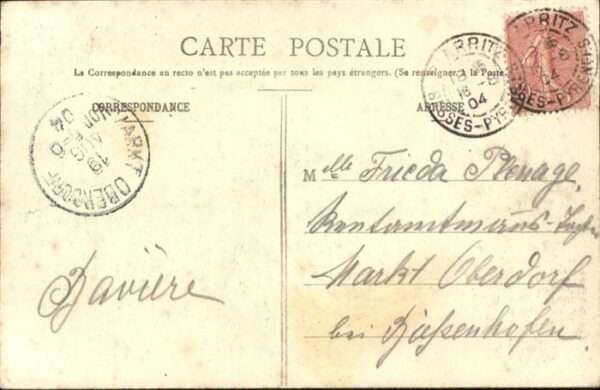 CARTE POSTALE
La Correspondance au recto n'est pas acceptée par tous les pays étrangers. (Se renseigner à la Poste
CORRESPONDANCE
ADRESSE
BIARRITZ
04
BASSES-PYR
BIARRITZ
04
BASSES-PYRÉNÉES
MARKT OBERDORF
19
AUG
04
Mlle Frieda
Rentamtmanns-
Markt Oberdorf
bei Biessenhofen
Bavière